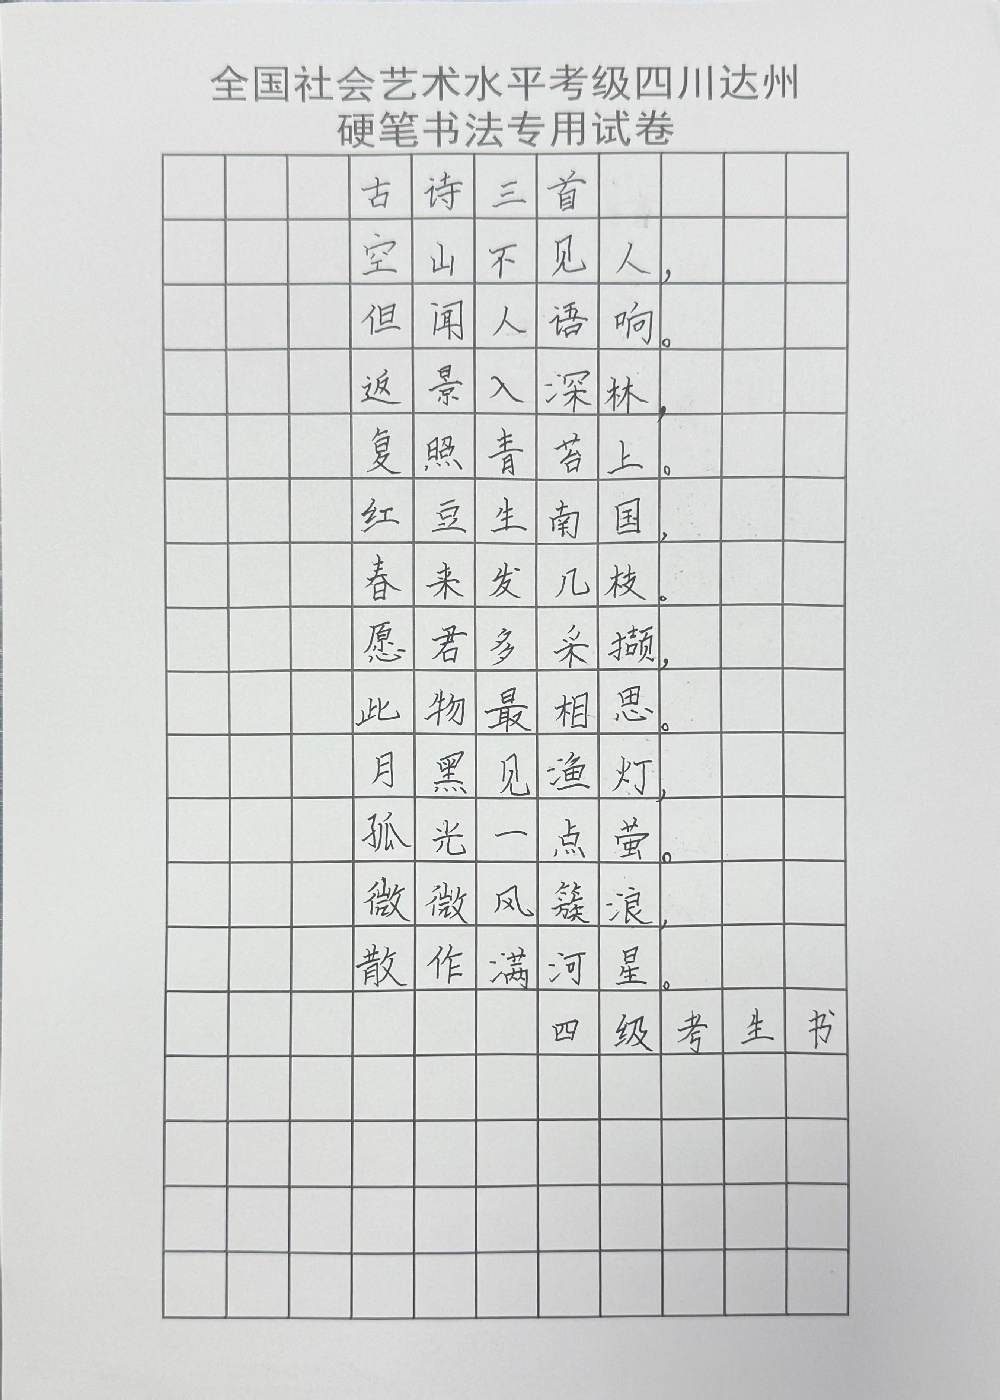 全国社会艺术水平考级四川达州
硬笔书法专用试卷
古诗三首
空山不见人，
但闻人语响。
返景入深林，
复照青苔上。
红豆生南国，
春来发几枝。
愿君多采撷，
此物最相思。
月黑见渔灯，
孤光一点萤。
微微风簇浪，
散作满河星。
四级考生书